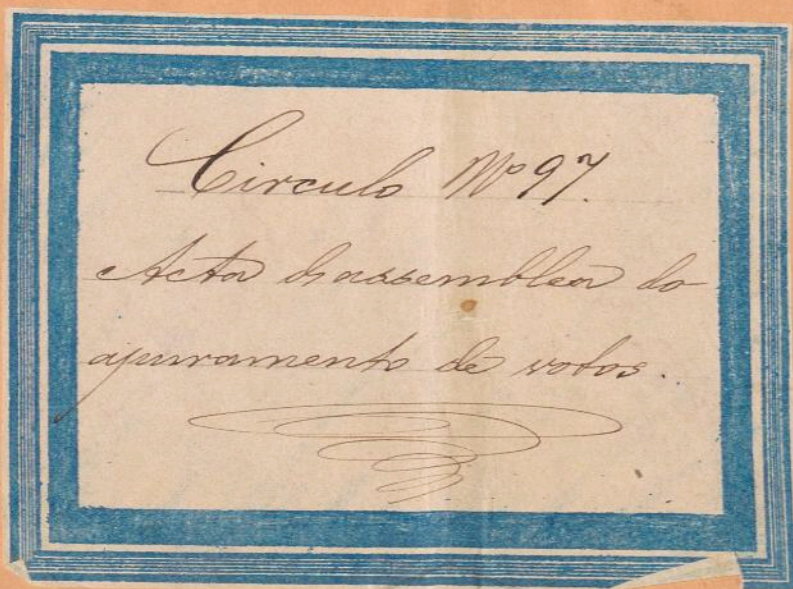 Circulo Nº 97.
Acta da assemblea do
apuramento de votos.